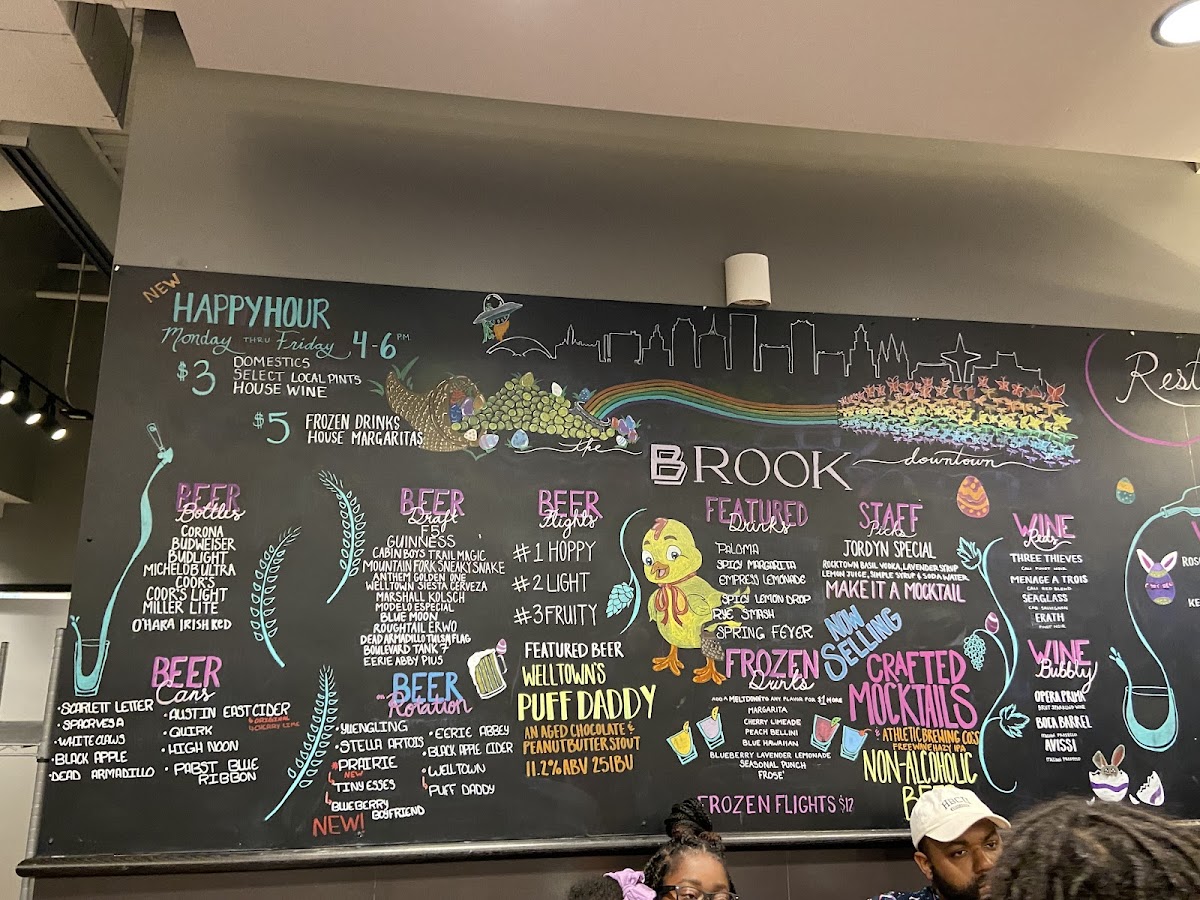 NEW
HAPPY HOUR
Monday THRU Friday 4-6 PM
$3 DOMESTICS
SELECT LOCAL PINTS
HOUSE WINE
$5 FROZEN DRINKS
HOUSE MARGARITAS
the
BROOK
downtown
Rest
BEER
Bottles
CORONA
BUDWEISER
BUDLIGHT
MICHELOB ULTRA
COOR'S
COOR'S LIGHT
MILLER LITE
O'HARA IRISH RED
BEER
Cans
•SCARLET LETTER
•WHITE CLAWS
•BLACK APPLE
•DEAD ARMADILLO
•AUSTIN EAST CIDER
•QUIRK
•HIGH NOON
•PABST BLUE
RIBBON
BEER
Draft
F5
GUINNESS
CABIN BOYS TRAIL MAGIC
MOUNTAIN FORK SNEAKY SNAKE
ANTHEM GOLDEN ONE
WELLTOWN SIESTA CERVEZA
MARSHALL KOLSCH
MODELO ESPECIAL
BLUE MOON
ROUGHTAIL ERWO
DEAD ARMADILLO TULSA FLAG
BOULEVARD TANK 7
EERIE ABBY PIUS
BEER
on Rotation
•YUENGLING
•STELLA ARTOIS
PRAIRIE
NEW
TINY ESSES
BLUEBERRY
BOYFRIEND
NEW!
•EERIE ABBEY
•BLACK APPLE CIDER
WELLTOWN
PUFF DADDY
BEER
Flights
#1 HOPPY
#2 LIGHT
#3 FRUITY
FEATURED BEER
WELLTOWN'S
PUFF DADDY
AN AGED CHOCOLATE &
PEANUT BUTTER STOUT
11.2% ABV 25 IBU
FEATURED
Drinks
PALOMA
SPICY MARGARITA
EMPRESS LEMONADE
SPICY LEMON DROP
RYE SMASH
SPRING FEVER
FROZEN
Drinks
ADD A MELTDOWN TO ANY FLAVOR FOR $1 MORE
MARGARITA
CHERRY LIMEADE
PEACH BELLINI
BLUE HAWAIIAN
BLUEBERRY LAVENDER LEMONADE
SEASONAL PUNCH
FROSE'
FROZEN FLIGHTS $12
STAFF
Picks
JORDYN SPECIAL
ROCKTOWN BASIL VODKA, LAVENDER SYRUP
LEMON JUICE, SIMPLE SYRUP & SODA WATER
MAKE IT A MOCKTAIL
NOW
SELLING
CRAFTED
MOCKTAILS
& ATHLETIC BREWING CO'S
FREE WAVE HAZY IPA
NON-ALCOHOLIC
WINE
Reds
THREE THIEVES
MENAGE A TROIS
CALI RED BLEND
SEAGLASS
ERATH
PINOT NOIR
WINE
Bubbly
OPERA PRIMA
BRUT SPARKLING WINE
BOCA BARREL
AVISSI